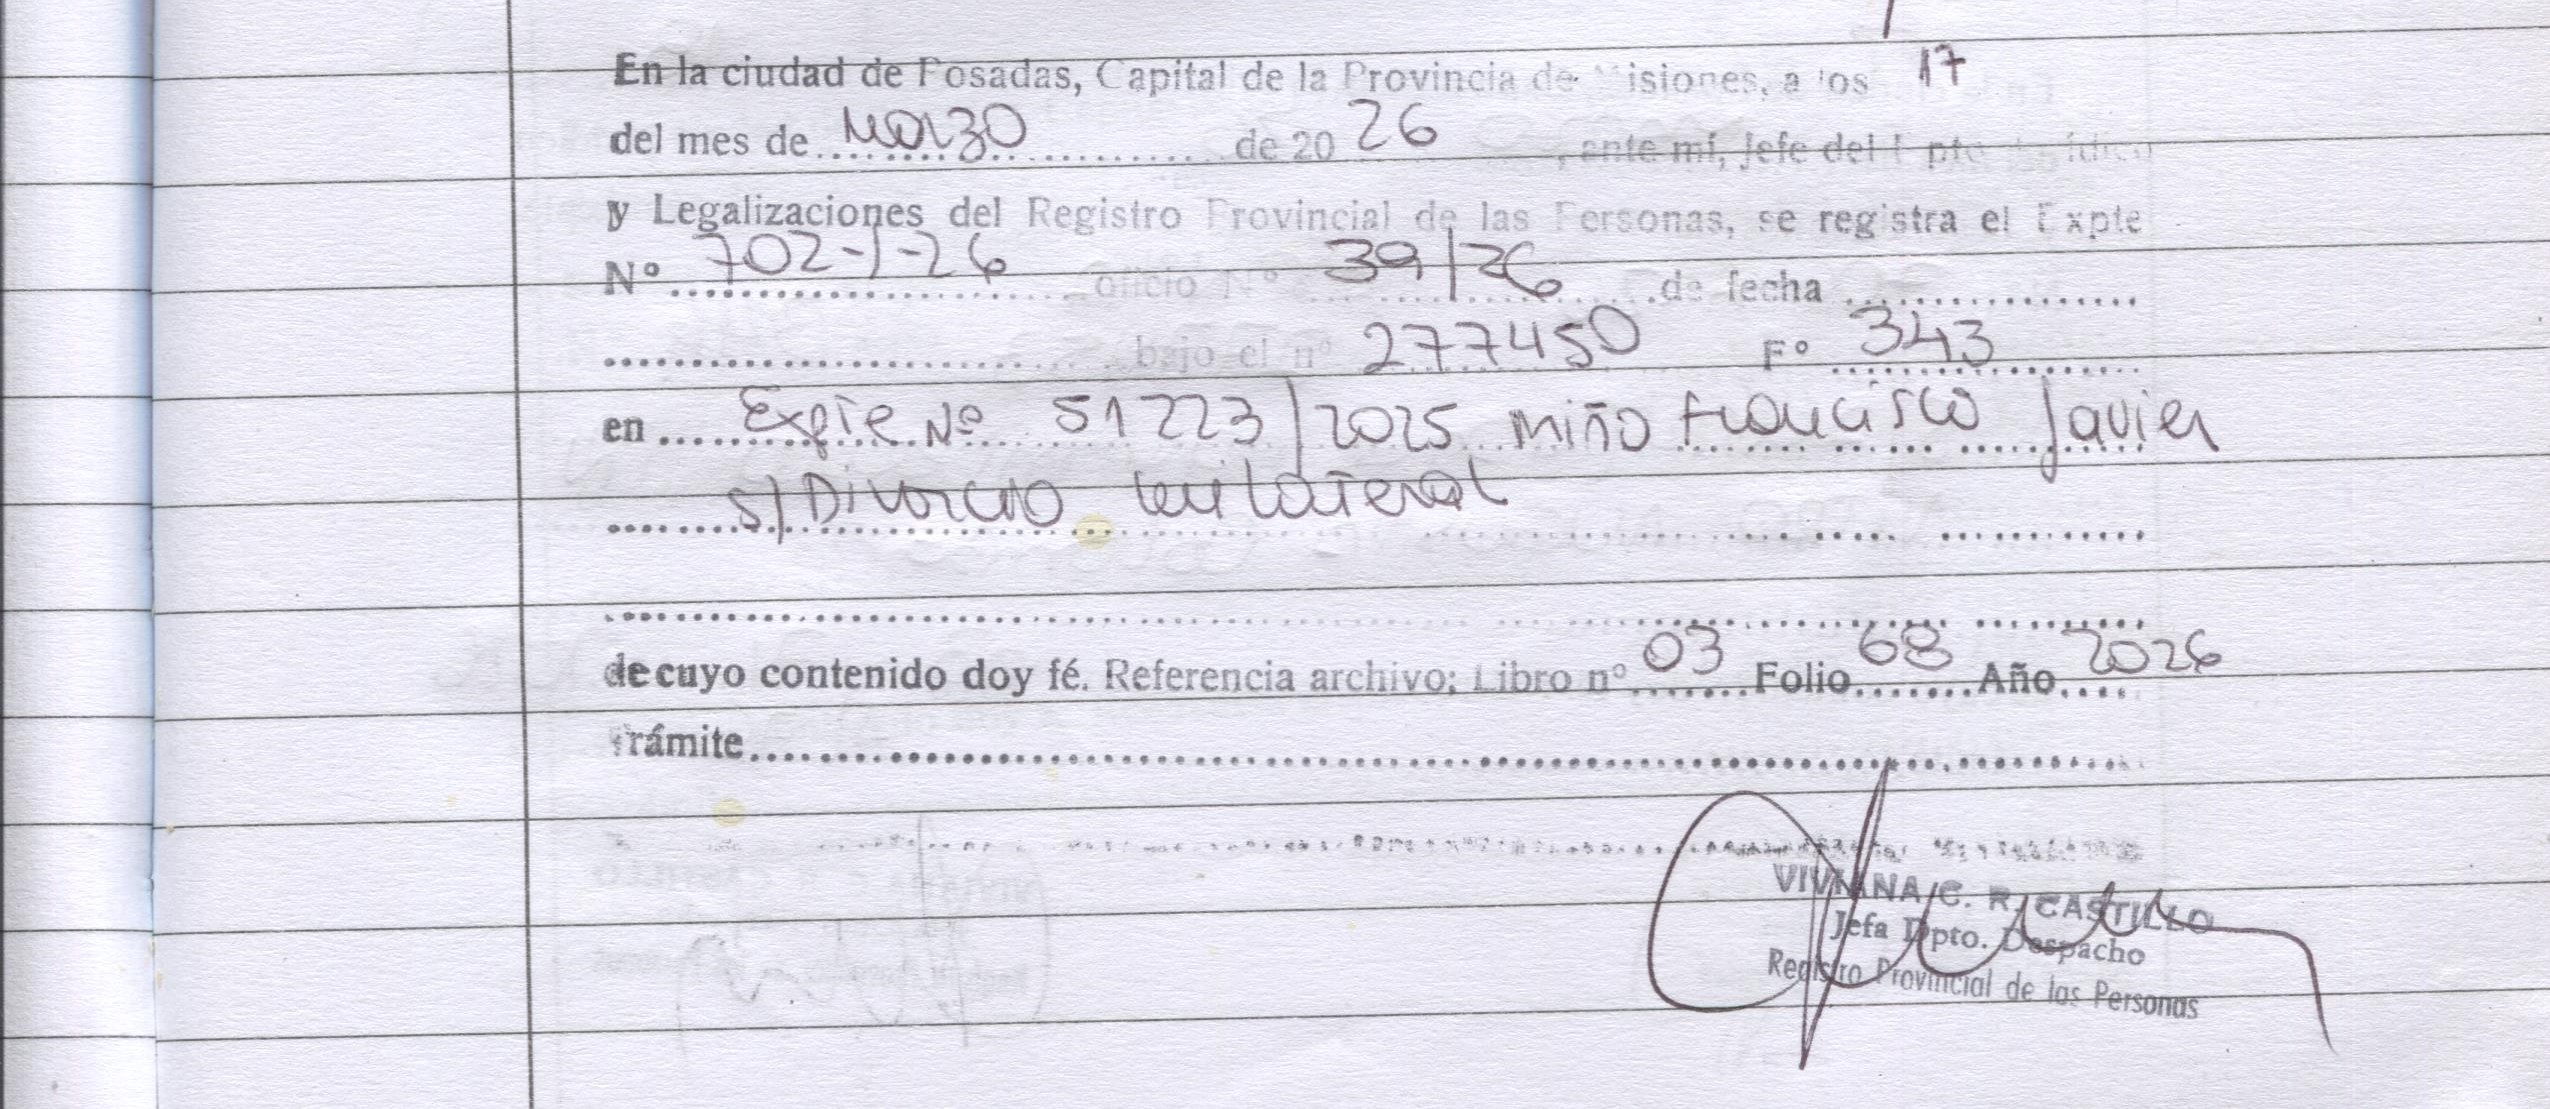 En la ciudad de Posadas, Capital de la Provincia de Misiones, a los 17
del mes de Marzo de 2026, ante mí, Jefe del Dpto
y Legalizaciones del Registro Provincial de las Personas, se registra el Expte
Nº 702-J-26 oficio Nº 39/26 de fecha
bajo el nº 277450 Fº 343
en Expte Nº 51223/2025 Miño Francisco Javier
s/ Divorcio Unilateral
de cuyo contenido doy fé. Referencia archivo; Libro nº 03 Folio 68 Año 2026
Trámite
VIVIANA C. R. CASTILLO
Jefa Dpto. Despacho
Registro Provincial de las Personas